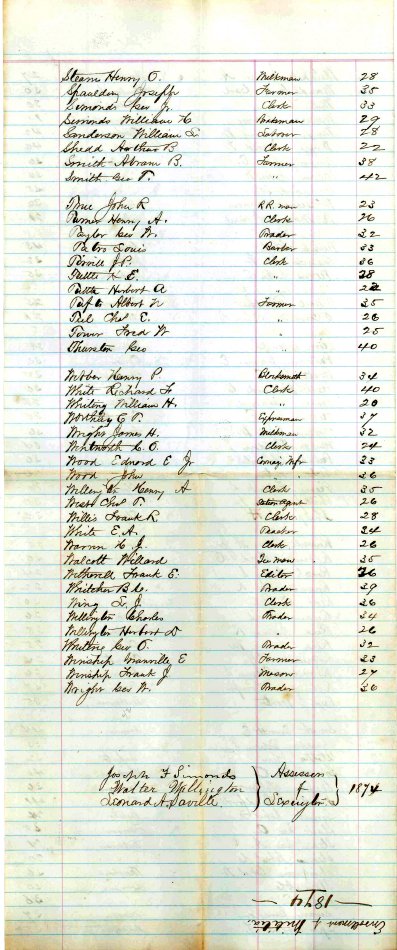 Stearns Henry O. Milkman 28
Spaulding Joseph Farmer 35
Simonds Geo Jr. Clerk 33
Simonds William H Brakeman 29
Sanderson William L Laborer 28
Shedd Arthur B Clerk 22
Smith Abram B. Farmer 38
Smith Geo T. " 42
True John R R.R. man 23
Turner Henry A. Clerk 26
Taylor Geo W. Trader 32
Louis Barber 33
J.P. Clerk 36
E. " 28
Tuttle Herbert A "
Taft Albert N Farmer 35
Teel Chas E. " 26
Tower Fred W " 25
Thurston Geo " 40
Webber Henry P Blacksmith 34
White Richard F Clerk 40
Whiting William H. " 20
Worthley E P. Expressman 37
Wright James H. Milkman 32
Wentworth C. O. Clerk 24
Wood Edward E Jr Mfr 33
Wood John " 36
Henry A Clerk 35
West Chas T. Station agent 26
Willis Frank R. Clerk 28
White E.A. Teacher 34
Warren H J. Clerk 26
Walcott Willard man 35
Wetherell Frank E. Editor 26
Whitcher B Trader 39
Wing L. J. Clerk 36
Wellington Charles Trader 34
Wellington Herbert D " 26
Whiting Geo O. Trader 32
Winship Manville E Farmer 23
Winship Frank J Mason 27
Wright Geo W. Trader 36
Joseph F Simonds
Walter Wellington
Leonard A Saville
Assessors
of
Lexington
1874
Enrollment of Militia.
1874